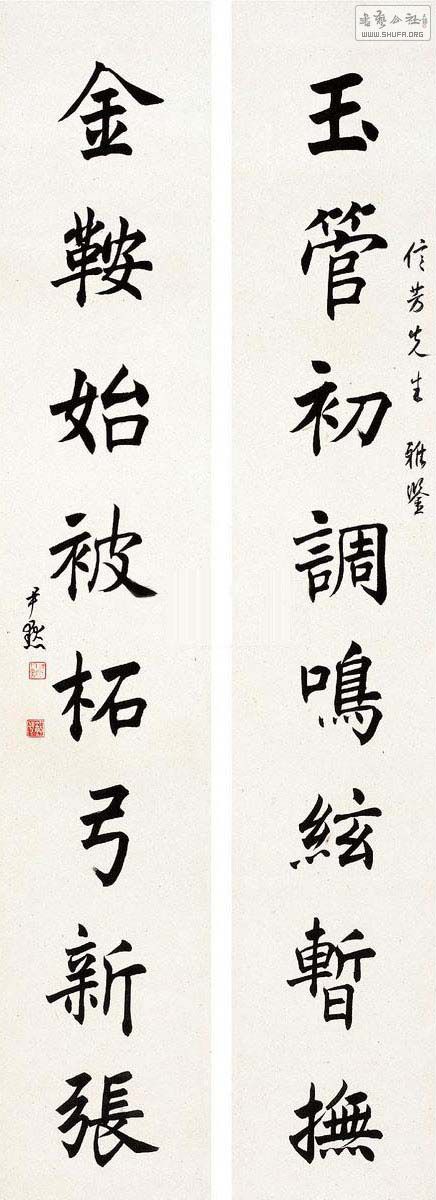 玉管初調鳴絃暫撫
信芳先生 雅鑒
金鞍始被柘弓新張
尹默
書藝公社
WWW.SHUFA.ORG